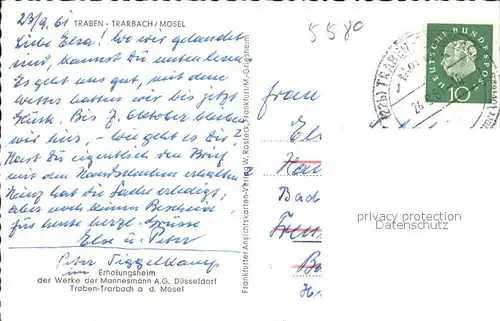 23/9. 61 TRABEN - TRARBACH / MOSEL
5580
Liebe Elsa! Wo wir gelandet
sind, kannst Du unten lesen
Es geht uns gut, mit dem
Wetter hatten wir bis jetzt
Glück. Bis 7. Oktober bleiben
wir hier, - wie geht es Dir?
Hast du eigentlich den Brief
mit den erhalten
Heinz hat die Sache erledigt,
aber noch keinen Bescheid
für heute herzl. Grüsse
Else u. Peter
Peter Tiggelkamp
im Erholungsheim
der Werke der Mannesmann A.G. Düsseldorf
Traben-Trarbach a. d. Mosel
Frankfurter Ansichtskarten-Verlag W. Rosteck, Frankfurt/M-Griesheim
DEUTSCHE BUNDESPOST
10
(22b) TRABEN-
24.
Frau
Els
Bad
privacy protection
Datenschutz